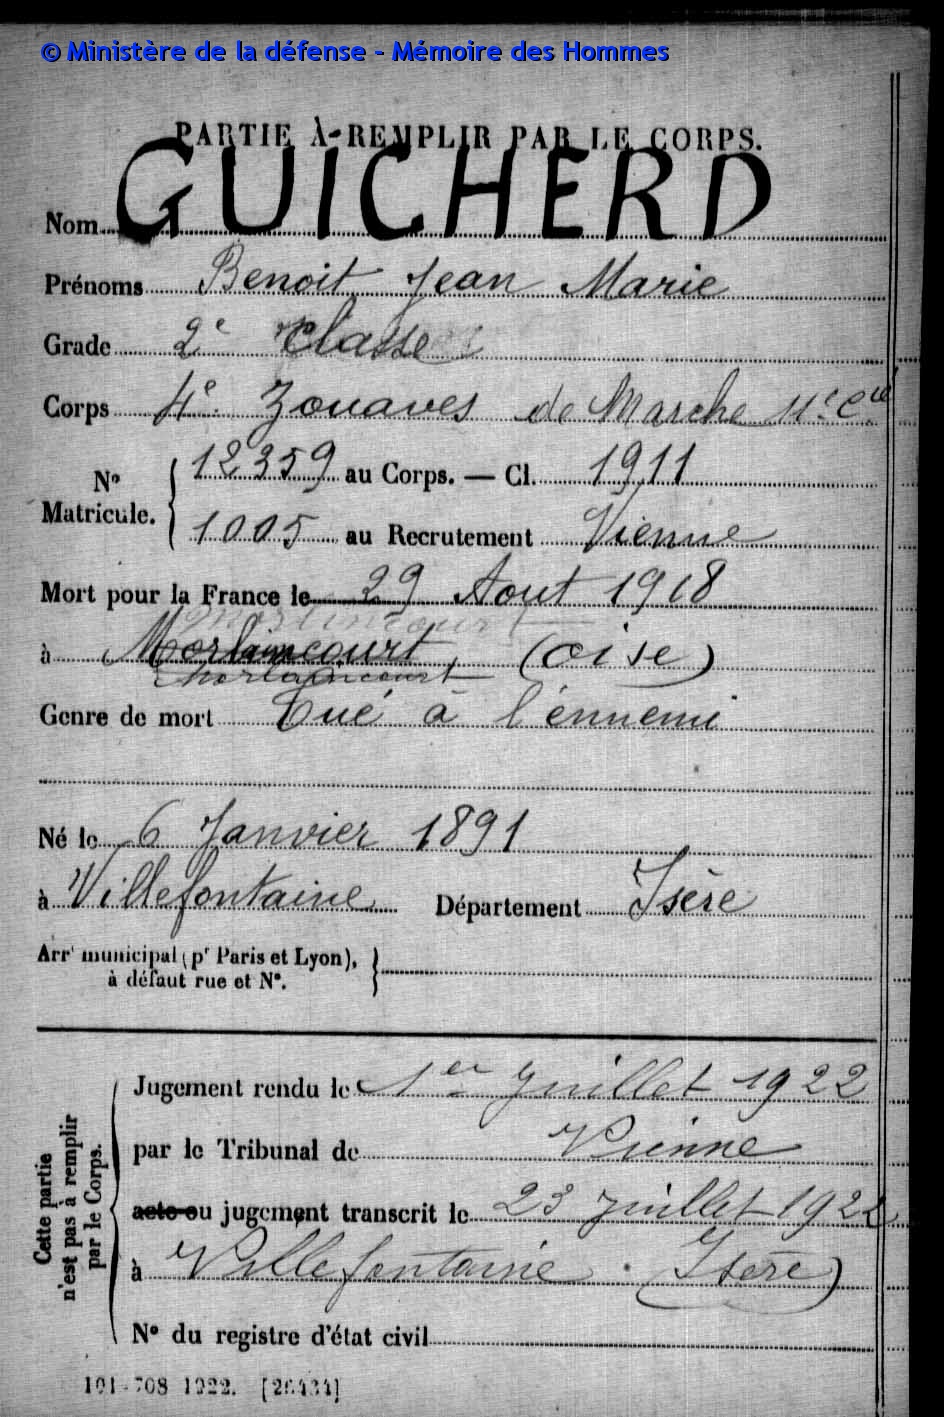 © Ministère de la défense - Mémoire des Hommes
PARTIE À REMPLIR PAR LE CORPS.
Nom GUICHERD
Prénoms Benoit Jean Marie
Grade 2e Classe
Corps 4e Zouaves de Marche 11e Cie
No Matricule. 12359 au Corps. — Cl. 1911
1005 au Recrutement Vienne
Mort pour la France le 29 Aout 1918
à Morlincourt (Oise)
Genre de mort Tué à l'ennemi
Né le 6 Janvier 1891
à Villefontaine Département Isère
Arrt municipal (pr Paris et Lyon),
à défaut rue et No.
Cette partie n'est pas à remplir par le Corps.
Jugement rendu le 1er Juillet 1922
par le Tribunal de Vienne
acte ou jugement transcrit le 23 Juillet 1922
à Villefontaine (Isère)
No du registre d'état civil
101-708 1922. [26434]